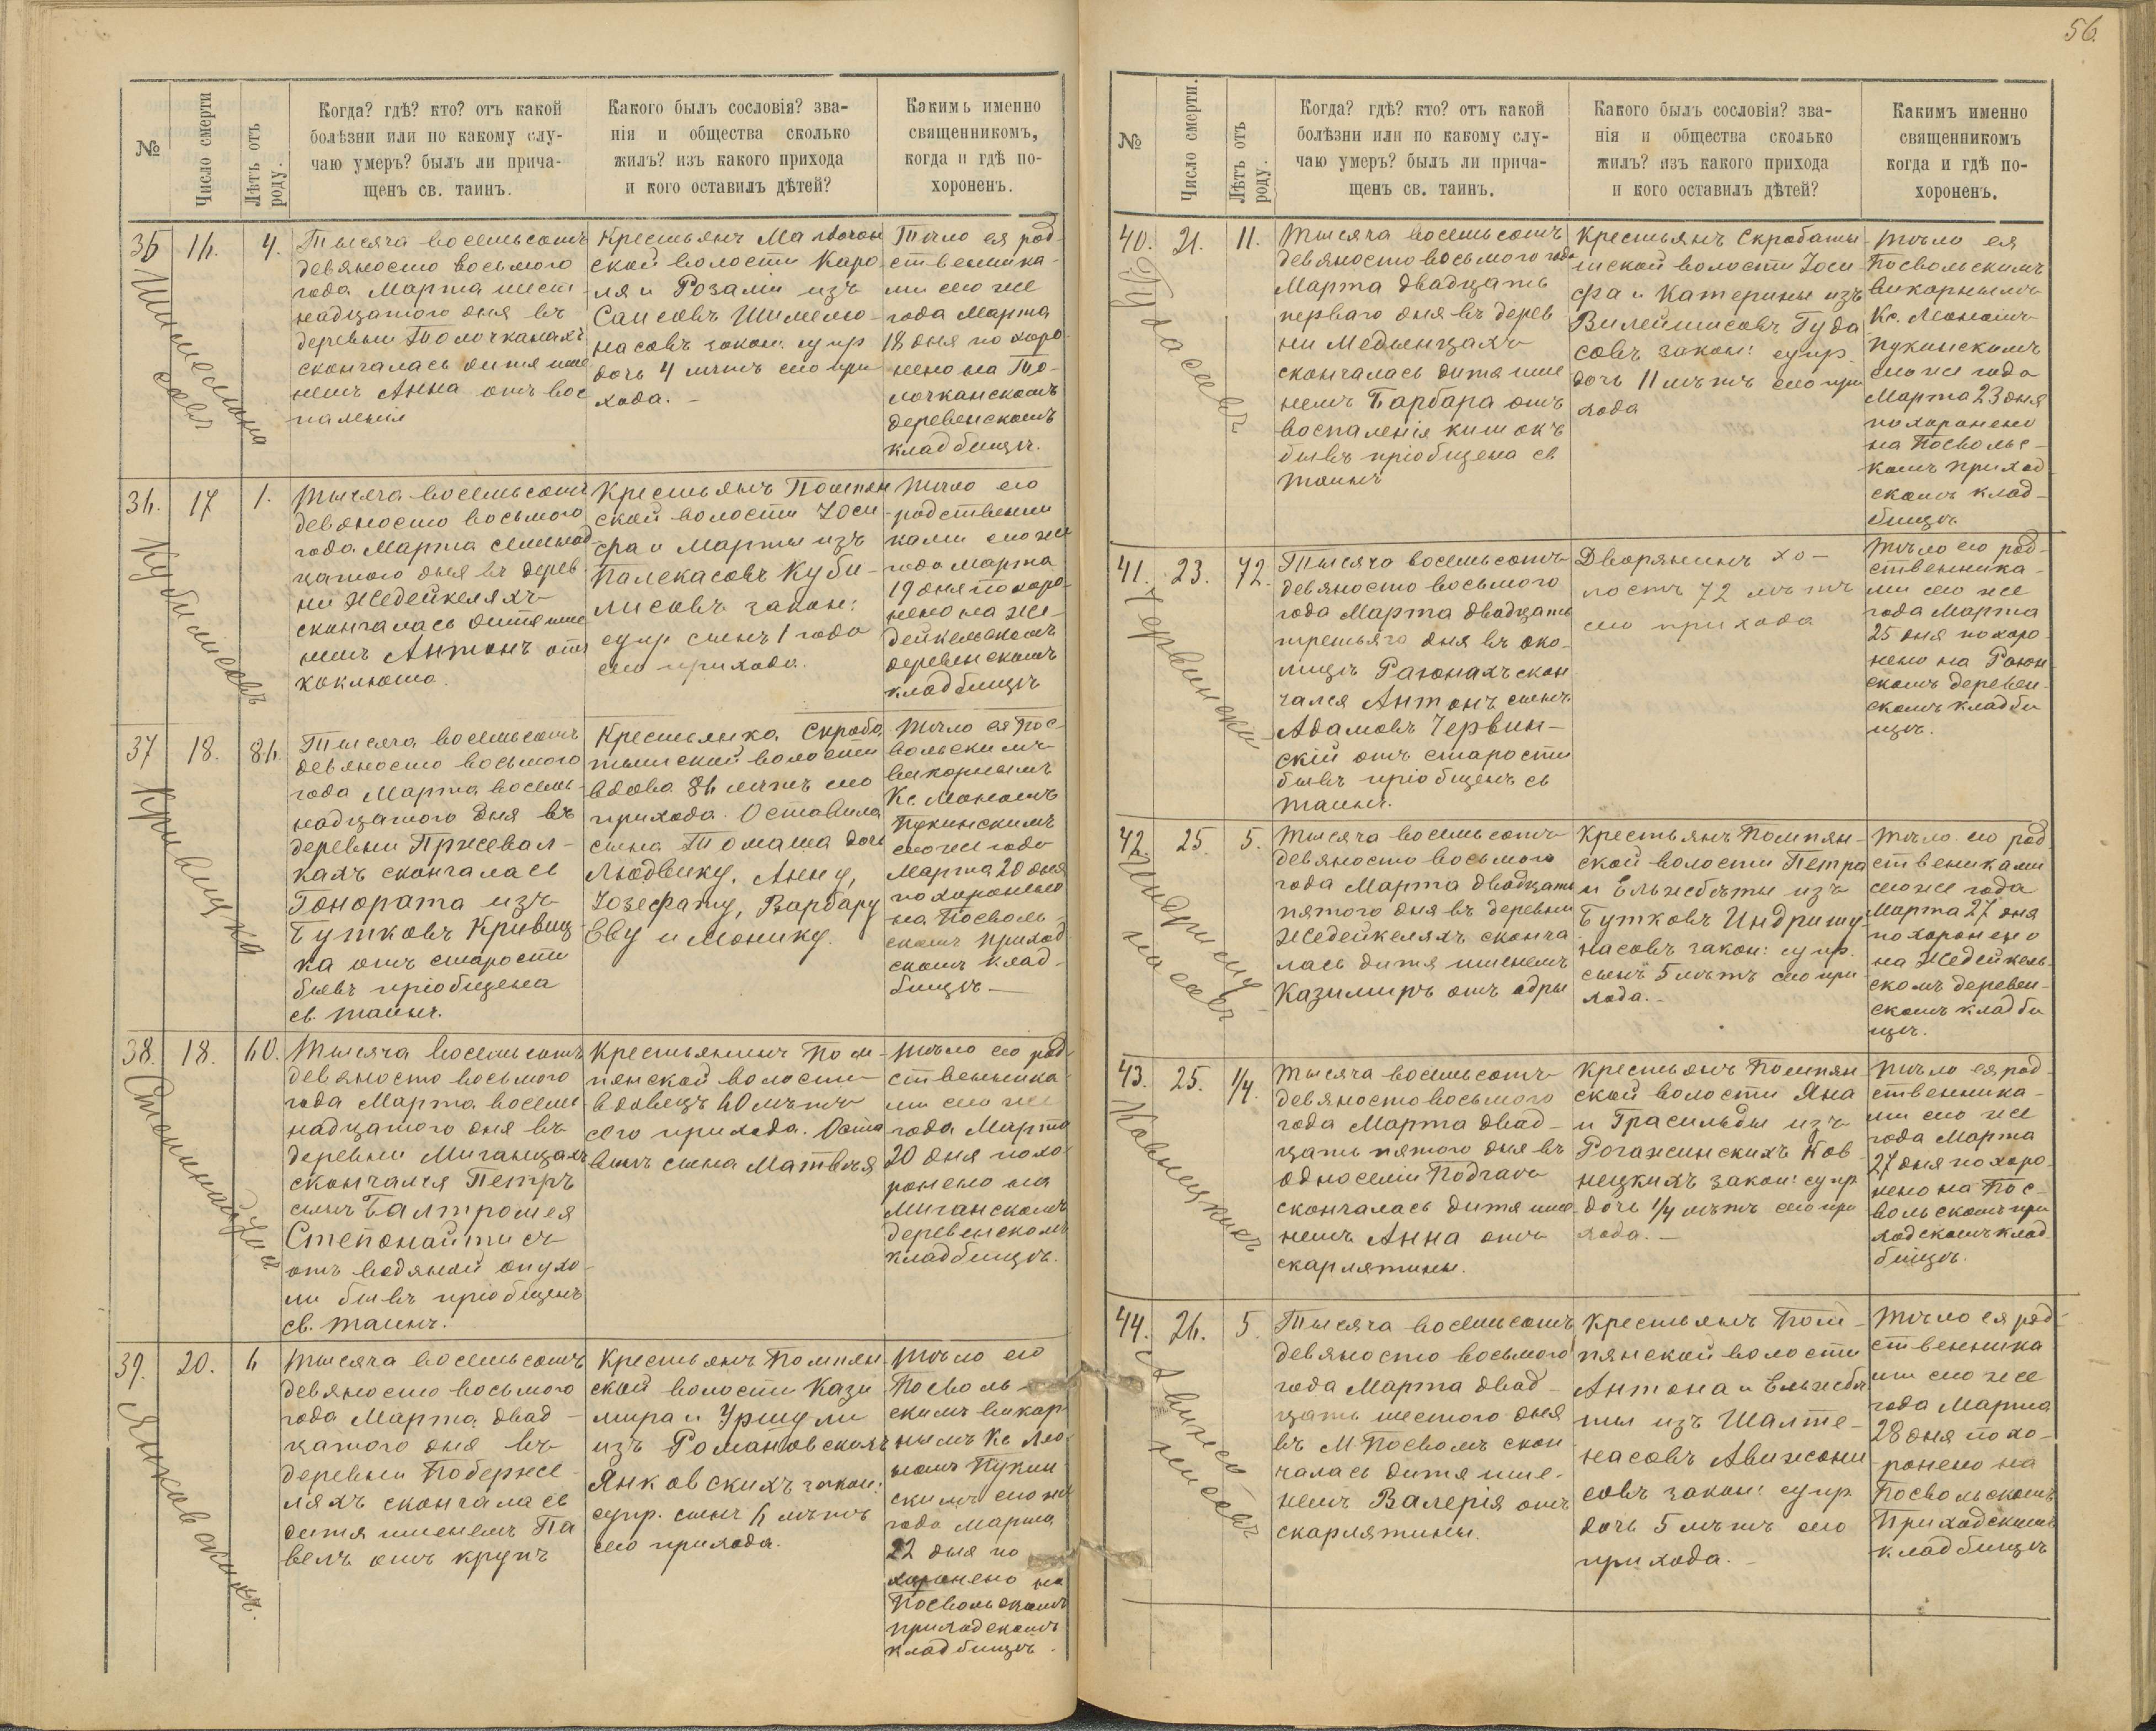 56.
№
Число смерти
Лѣтъ отъ роду.
Когда? гдѣ? кто? отъ какой
болѣзни или по какому слу-
чаю умеръ? былъ ли прича-
щенъ св. таинъ.
Какого былъ сословія? зва-
нія и общества сколько
жилъ? изъ какого прихода
и кого оставилъ дѣтей?
Какимъ именно
священникомъ,
когда и гдѣ по-
хороненъ.
35
16.
4.
Тысяча восемьсотъ
девяносто восьмого
года Марта шест-
надцатого дня въ
деревни Толочканахъ
скончалась дитя име
немъ Анна отъ вос
паленія
Крестьянъ
ской волости Каро
ля и Розаліи изъ
Шимелю-
насовъ закон: супр
дочь 4 лѣтъ сего при
хода. -
Тѣло ея род-
ственника-
ми сего же
года Марта
18 дня похоро
нено на То-
лочканскомъ
деревенскомъ
кладбищѣ.
36.
17
1.
Кубилисовъ
Тысяча восемьсотъ
девяносто восьмого
года Марта семнад-
цатого дня въ дерев
ни Жедейкеляхъ
скончалась дитя име
немъ Антонъ отъ
коклюша.
Крестьянъ Помпян
ской волости Іоси-
фа и Марты изъ
Палекасовъ Куби-
лисовъ закон:
супр сынъ 1 года
сего прихода.
Тѣло его
родственни
ками сего же
года Марта
19 дня похоро
нено на Же-
дейкельскомъ
деревенскомъ
кладбищѣ
37
18.
86.
Кривицка
Тысяча восемьсотъ
девяносто восьмого
года Марта восем-
надцатого дня въ
деревни Пржевал-
кахъ скончалась
Гонората изъ
Бутковъ Кривиц
ка отъ старости
бывъ пріобщена
св. таинъ.
Крестьянка Скроба
тышской волости
вдова 86 лѣтъ сего
прихода. Оставила
сына Томаша дочь
Людвику, Анну,
Іозефату, Варвару
Еву и Монику.
Тѣло ея Пос-
вольскимъ
викарнымъ
Кс.
Пукинскимъ
сего же года
Марта 20 дня
похоронено
на Посволь-
скомъ приход
скомъ клад-
бищѣ -
38.
18.
60.
Тысяча восемьсотъ
девяносто восьмого
года Марта восем
надцатого дня въ
деревни Миганцахъ
скончался Петръ
сынъ Балтромея
Степонайтисъ
отъ водяной опухо-
ли бывъ пріобщенъ
св. таинъ.
Крестьянинъ Пом-
пянской волости
вдовецъ 60 лѣтъ
сего прихода. Оста
вилъ сына Матвѣя
Тѣло его род
ственника
ми сего же
года Марта
20 дня похо
ронено на
Миганскомъ
деревенскомъ
кладбищѣ.
39.
20.
6
Янковскихъ.
Тысяча восемьсотъ
девяносто восьмого
года Марта двад-
цатого дня въ
деревни Поберже-
ляхъ скончалась
дитя именемъ Па
велъ отъ крупъ
Крестьянъ Помпян
ской волости Кази
мира и Уршули
изъ Романовскихъ
Янковскихъ закон:
супр. сынъ 6 лѣтъ
сего прихода.
Тѣло его
Посволь-
скимъ викар
нымъ Кс
Пукин
скимъ сего же
года Марта
22 дня по
хоронено на
Посвольскомъ
приходскомъ
кладбищѣ.
№
Число смерти.
Лѣтъ отъ роду.
Когда? гдѣ? кто? отъ какой
болѣзни или по какому слу-
чаю умеръ? былъ ли прича-
щенъ св. таинъ.
Какого былъ сословія? зва-
нія и общества сколько
жилъ? изъ какого прихода
и кого оставилъ дѣтей?
Какимъ именно
священникомъ
когда и гдѣ по-
хороненъ.
40.
21.
11.
Гудасовъ
Тысяча восемьсотъ
девяносто восьмого года
Марта двадцать
перваго дня въ дерев
ни Медынцахъ
скончалась дитя име
немъ Барбара отъ
воспаленія кишокъ
бывъ пріобщена св
таинъ
Крестьянъ Скробаты
шской волости Іоси-
фа и Катерины изъ
Вилейшисовъ Гуда
совъ закон: супр.
дочь 11 лѣтъ сего при
хода
Тѣло ея
Посвольскимъ
викарнымъ
Кс.
Пукинскимъ
сего же года
Марта 23 дня
похоронено
на Посвольс-
комъ приход
скомъ клад-
бищѣ
41.
23.
72.
Червински
Тысяча восемьсотъ
девяносто восьмого
года Марта двадцать
третьяго дня въ око-
лицѣ Раюнахъ скон
чался Антонъ сынъ
Адамовъ Червин-
скій отъ старости
бывъ пріобщенъ св
таинъ.
Дворянинъ хо-
лостъ 72 лѣтъ
сего прихода
Тѣло его род-
ственника-
ми сего же
года Марта
25 дня похоро
нено на Раюн
скомъ деревен-
скомъ кладби
щѣ.
42.
25.
5.
Индришунасовъ
Тысяча восемьсотъ
девяносто восьмого
года Марта двадцать
пятого дня въ деревни
Жедейкеляхъ сконча
лась дитя именемъ
Казимиръ отъ одры
Крестьянъ Помпян-
ской волости Петра
и Ельжбѣты изъ
Бутковъ Индришу-
насовъ закон: супр.
сынъ 5 лѣтъ сего при
хода. -
Тѣло его род
ствениками
сего же года
Марта 27 дня
похоронено
на Жедейкель-
скомъ деревен-
скомъ кладби
щѣ.
43.
25.
1/4.
Ковнецкихъ
Тысяча восемьсотъ
девяносто восьмого
года Марта двад-
цать пятого дня въ
односеліи
скончалась дитя име
немъ Анна отъ
скарлятины.
Крестьянъ Помпян
ской волости Яна
и Грасильды изъ
Рогажинскихъ Ков
нецкихъ закон: супр
дочь 1/4 лѣтъ сего при
хода. -
Тѣло ея род-
ственника-
ми сего же
года Марта
27 дня похоро
нено на Пос-
вольскомъ при
ходскомъ клад
бищѣ.
44.
26.
5.
Тысяча восемьсотъ
девяносто восьмого
года Марта двад-
цать шестого дня
въ М. Посволѣ скон
чалась дитя име-
немъ Валерія отъ
скарлятины.
Крестьянъ Пом-
пянской волости
Антона и Ельжбѣ
ты изъ Шалте-
насовъ Авижони
совъ закон: супр.
дочь 5 лѣтъ сего
прихода. -
Тѣло ея род-
ственника
ми сего же
года Марта
28 дня похо-
ронено на
Посвольскомъ
Приходскомъ
кладбищѣ